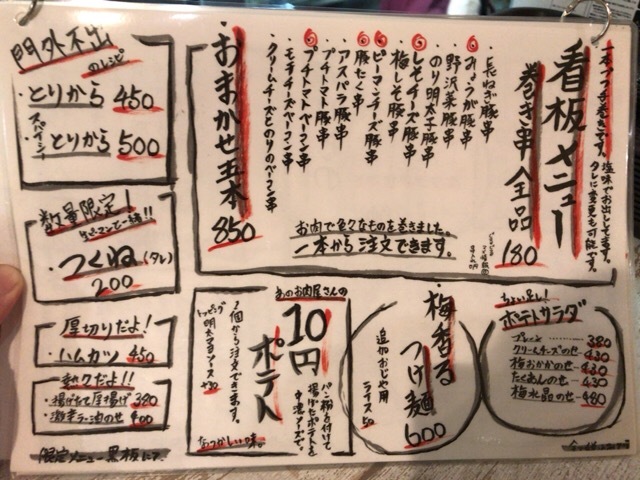 一本づつ手巻きです。塩味でお出ししてます。
タレに変更も可能です。
看板メニュー
巻き串全品
180
・長ねぎ豚串
・みょうが豚串
・野沢菜豚串
・のり明太子豚串
・しそチーズ豚串
・梅しそ豚串
・ピーマンチーズ豚串
・豚たく串
・アスパラ豚串
・プチトマト豚串
・プチトマトベーコン串
・モチチーズベーコン串
・クリームチーズとのりのベーコン串
お肉で色々なものを巻きました。
一本から注文できます。
おまかせ五本
850
門外不出
のレシピ
・とりから 450
・スパイシーとりから 500
数量限定!
ピーマンと一緒!!
・つくね(タレ)
200
厚切りだよ!
・ハムカツ 450
熱々だよ!!
・揚げたて厚揚げ 380
・激辛ラー油のせ 400
限定メニュー黒板にて
あのお肉屋さんの
10円
ポテト
パン粉を付けて
揚げたポテトを
中濃ソースで。
2個から注文できます。
トッピング
明太マヨソース +30
なつかしい味。
梅香る
つけ麺
600
追加おじや用
ライス 50
ちょい足し!
ポテトサラダ
プレーン 380
クリームチーズのせ 430
梅おかかのせ 430
たくあんのせ 430
梅水晶のせ 480